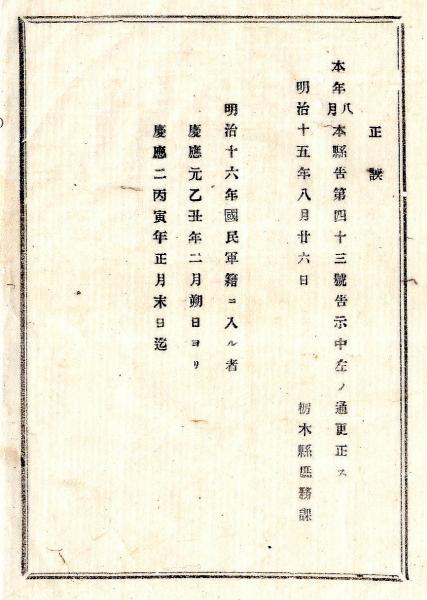 正誤
本年八月本縣告第四十三號告示中左ノ通更正ス
明治十五年八月廿六日　栃木縣庶務課
明治十六年國民軍籍ニ入ル者
慶應元乙丑年二月朔日ヨリ
慶應二丙寅年正月末日迄